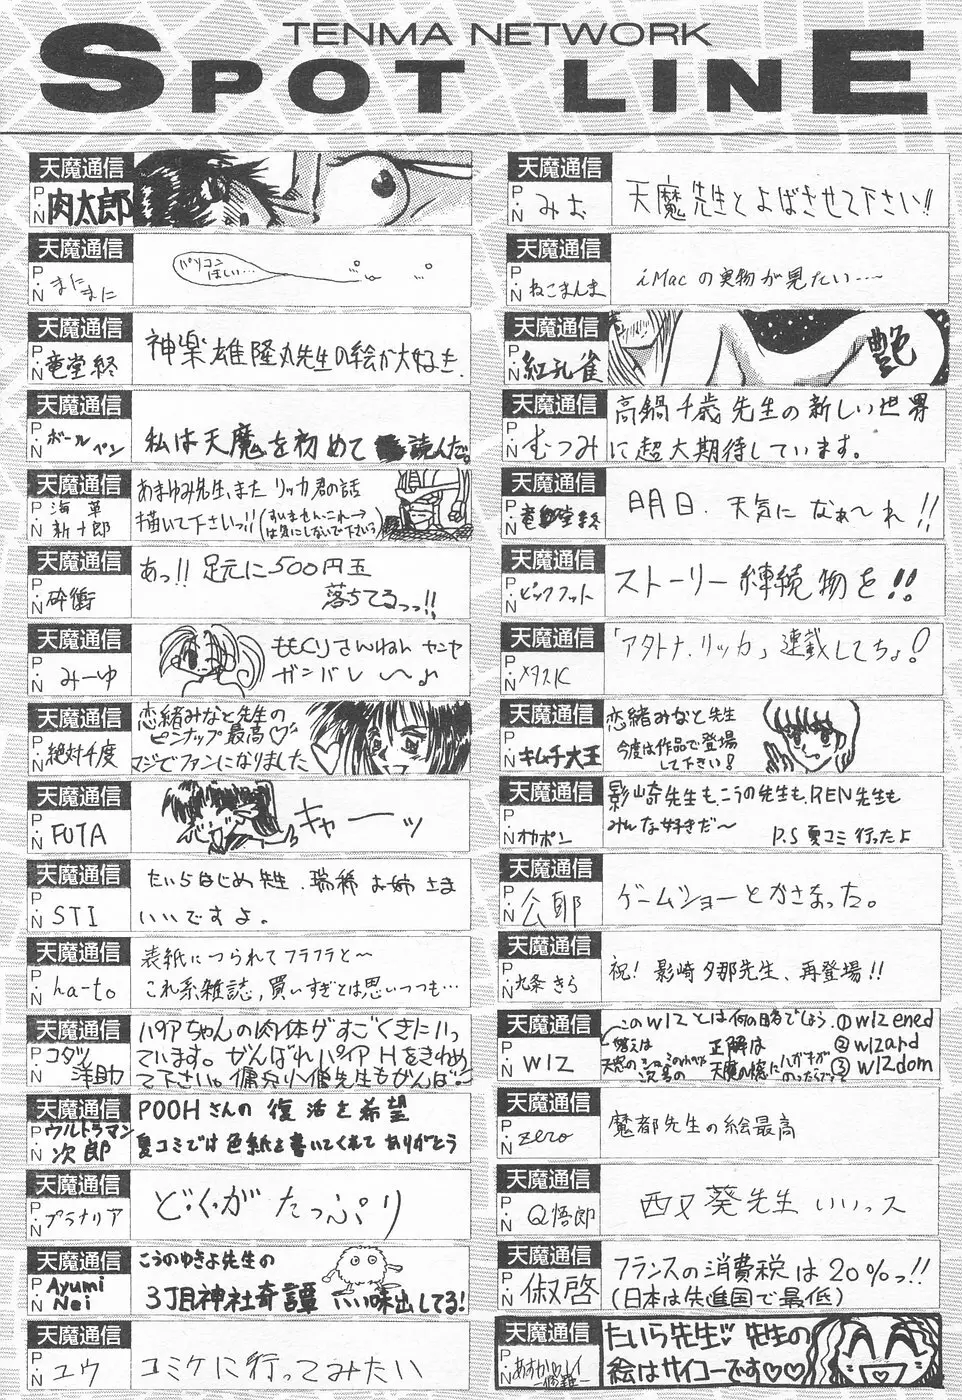 TENMA NETWORK
SPOT LINE
天魔通信
P・N 肉太郎
天魔通信
P・N まにまに
パソコン
ほしい…
天魔通信
P・N 竜堂終
神楽雄隆丸先生の絵が大好き.
天魔通信
P・N ボールペン
私は天魔を初めて読んだ。
天魔通信
P・N 海草新十郎
あまゆみ先生、また リッカ君の話
描いて下さいっ!!(すいません、これ→
は気にしないで下さい)
天魔通信
P・N 砕衝
あっ!! 足元に500円玉
落ちてるっっ!!
天魔通信
P・N みーゆ
ももくりさんねん
ガンバレ 〜♪
天魔通信
P・N 絶対千度
恋緒みなと先生の
ピンナップ最高♡
マジでファンになりました
天魔通信
P・N FUTA
キャーーッ
天魔通信
P・N STI
たいらはじめ先生.瑞稀お姉さま
いいですよ。
天魔通信
P・N ha-to
表紙につられてフラフラと〜
これ系雑誌,買いすぎとは思いつつも…
天魔通信
P・N コダツ洋助
パイアちゃんの肉体がすごくきにいっ
ています。がんばれパイア Hをきわめ
て下さい。傭兵小僧先生もがんば
天魔通信
P・N ウルトラマン次郎
POOHさんの 復活を希望
夏コミでは色紙を書いてくれて ありがとう
天魔通信
P・N プラナリア
どくがたっぷり
天魔通信
P・N Ayumi Nei
こうのゆきよ先生の
3丁目神社奇譚 いい味出してる!
天魔通信
P・N ユウ
コミケに行ってみたい
天魔通信
P・N みお
天魔先生とよばさせて下さい!!
天魔通信
P・N ねこまんま
iMacの実物が見たい……
天魔通信
P・N 紅孔雀
艶
天魔通信
P・N むつみ
高鍋千歳先生の新しい世界
に超大期待しています。
天魔通信
P・N 竜堂終
明日.天気になぁ〜れ!!
天魔通信
P・N ビックフット
ストーリー継続物を!!
天魔通信
P・N メタスK
「アタトナ.リッカ」連載してちょ!
天魔通信
P・N キムチ大王
恋緒みなと先生
今度は作品で登場
して下さい!
天魔通信
P・N オカポン
影崎先生も、こうの先生も、REN先生も
みんな好きだ〜 P.S 夏コミ行ったよ
天魔通信
P・N 公耶
ゲームショーとかさなった。
天魔通信
P・N 九条きら
祝! 影崎夕那先生、再登場!!
天魔通信
P・N WIZ
このWIZとは何の略でしょう.①wizened
答えは 正解は ②wizard
天然の 次号の 天魔の憶に ハガキが のったらです ③wizdom
天魔通信
P・N zero
魔都先生の絵最高
天魔通信
P・N Q悟郎
西又葵先生いいっス
天魔通信
P・N 俶啓
フランスの消費税は20%っ!!
(日本は先進国で最低)
天魔通信
P・N
たいら先生♡先生の
絵はサイコーです♡♡